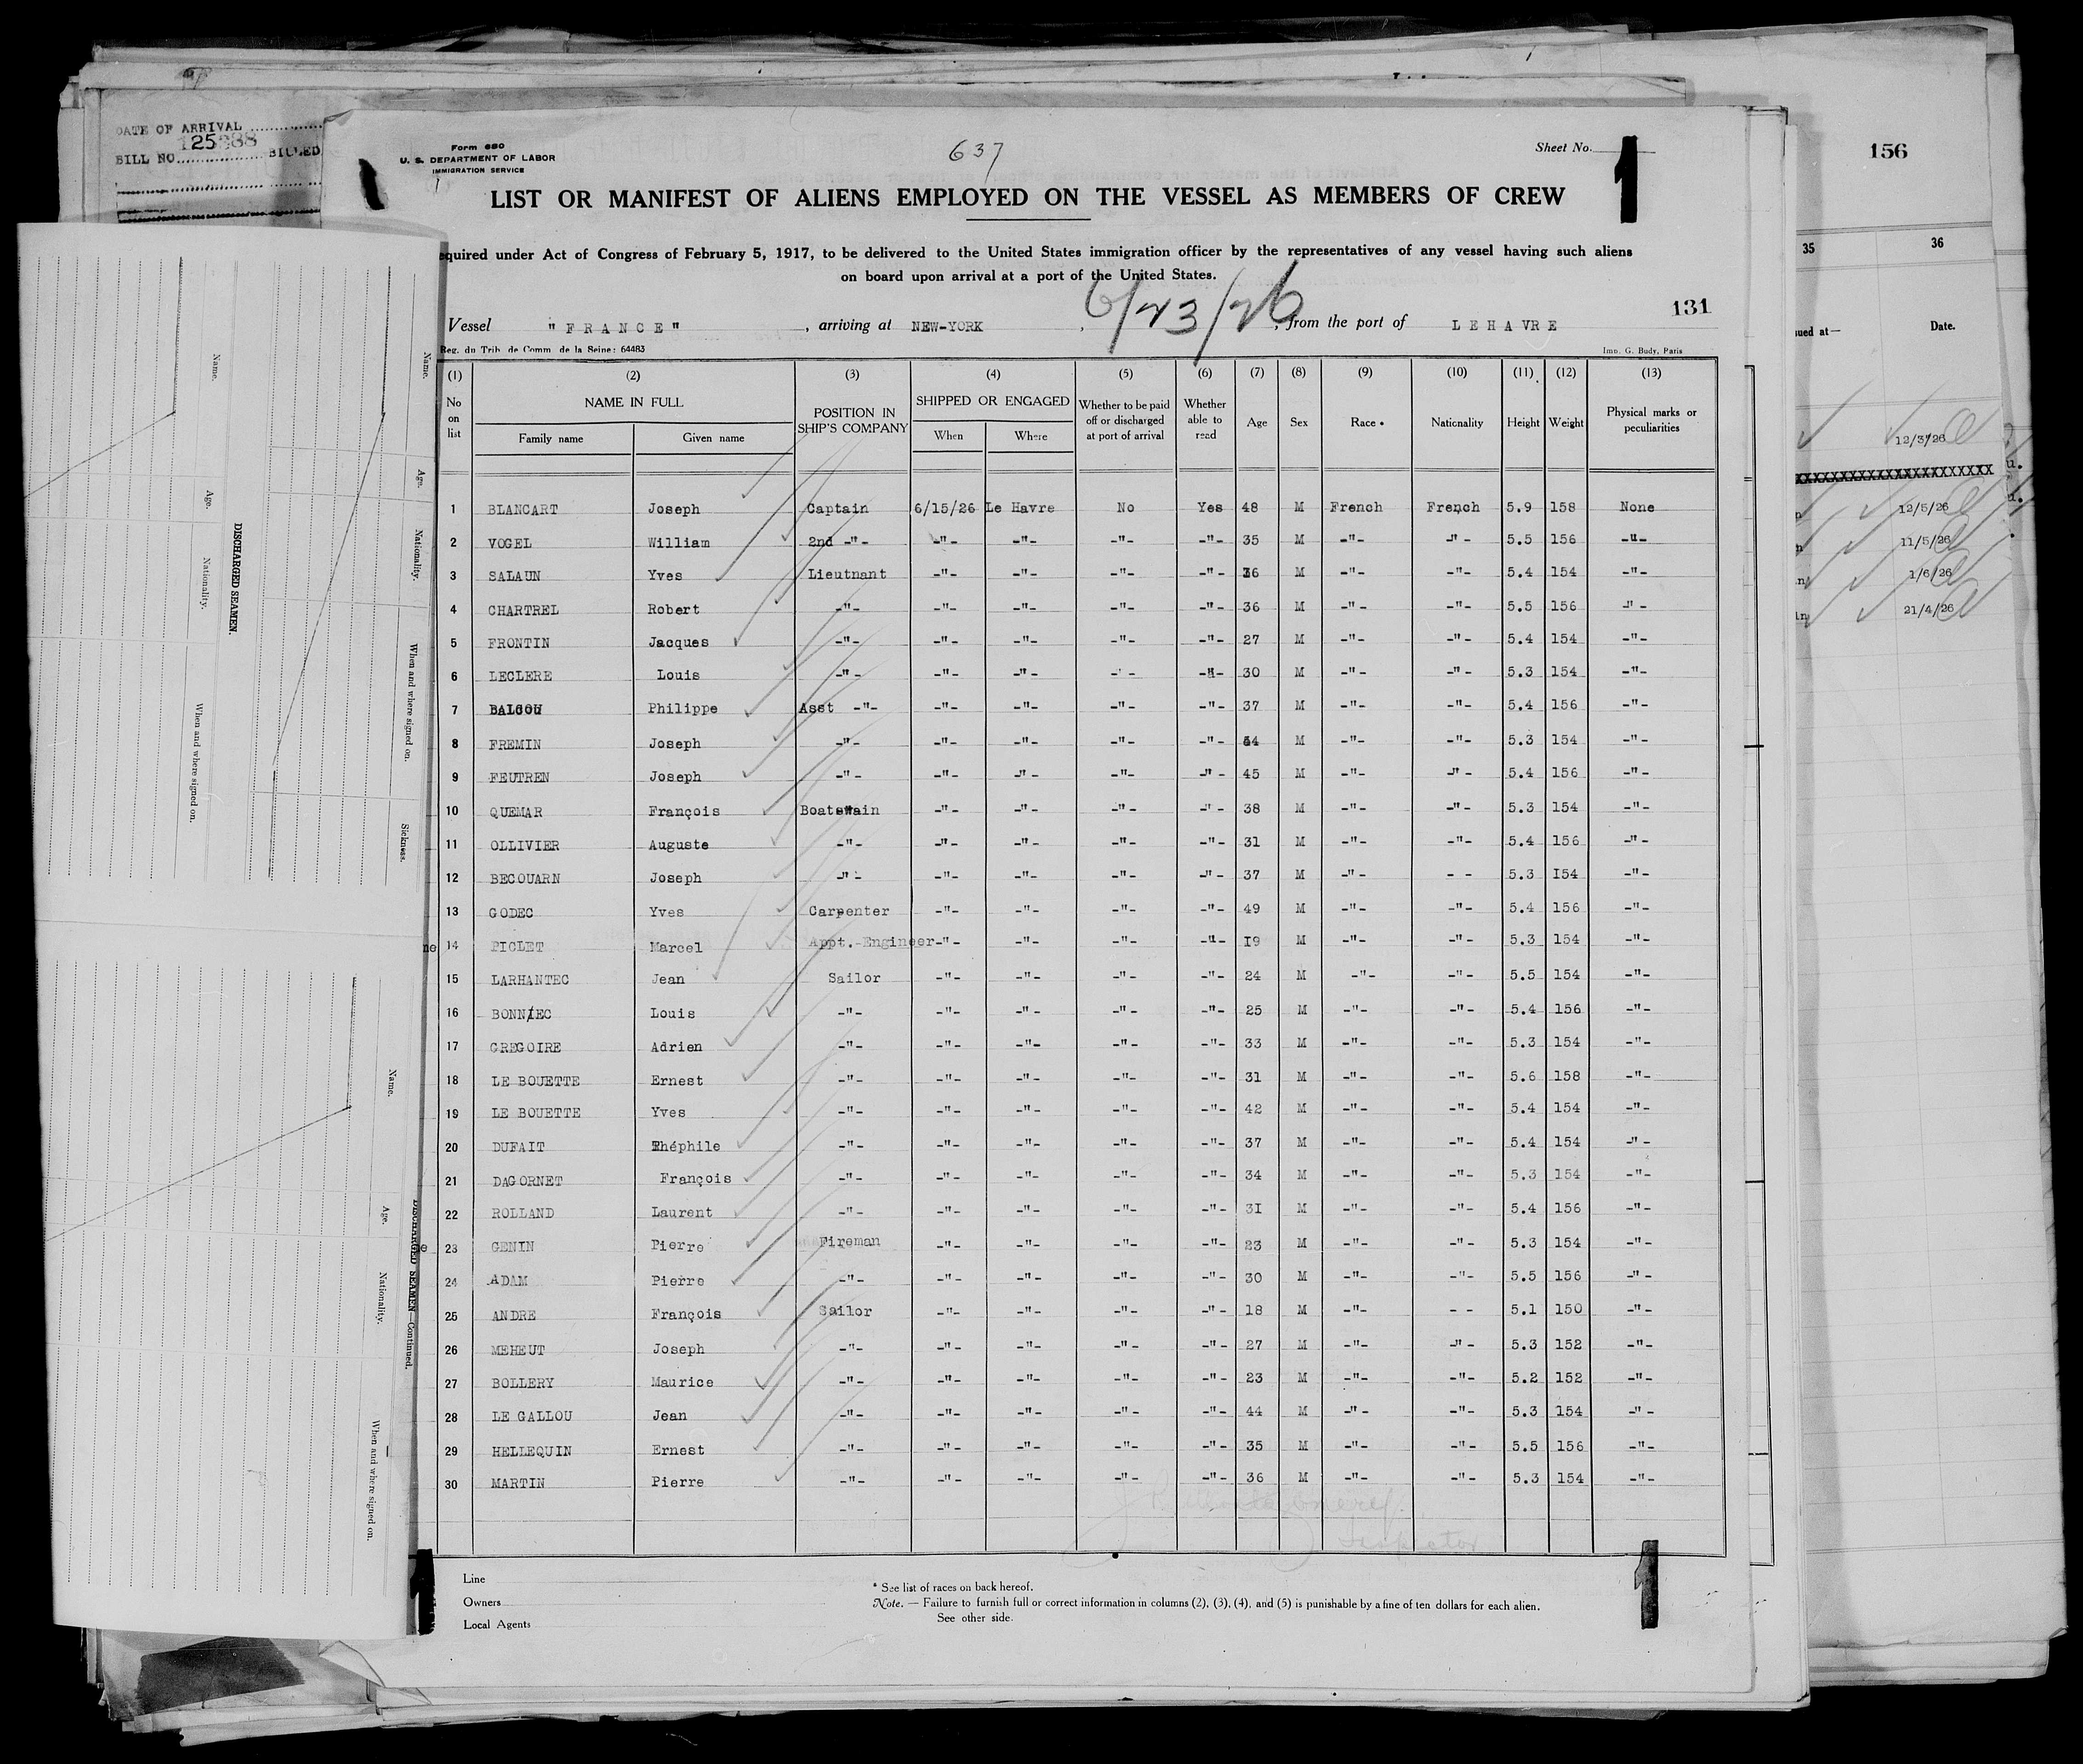 DATE OF ARRIVAL
125388
BILL NO. BILLED
Form 680
U. S. DEPARTMENT OF LABOR
IMMIGRATION SERVICE
637
Sheet No.
1
LIST OR MANIFEST OF ALIENS EMPLOYED ON THE VESSEL AS MEMBERS OF CREW
equired under Act of Congress of February 5, 1917, to be delivered to the United States immigration officer by the representatives of any vessel having such aliens
on board upon arrival at a port of the United States.
131
Vessel "FRANCE", arriving at NEW-YORK, 6/23/26, from the port of LEHAVRE
Reg. du Trib. de Comm. de la Seine: 64483
Imp. G. Budy, Paris
(1) (2) (3) (4) (5) (6) (7) (8) (9) (10) (11) (12) (13)
No on list NAME IN FULL POSITION IN SHIP'S COMPANY SHIPPED OR ENGAGED Whether to be paid off or discharged at port of arrival Whether able to read Age Sex Race * Nationality Height Weight Physical marks or peculiarities
Family name Given name When Where
1 BLANCART Joseph Captain 6/15/26 Le Havre No Yes 48 M French French 5.9 158 None
2 VOGEL William 2nd -"- -"- -"- -"- -"- 35 M -"- -"- 5.5 156 -"-
3 SALAUN Yves Lieutnant -"- -"- -"- -"- 36 M -"- -"- 5.4 154 -"-
4 CHARTREL Robert -"- -"- -"- -"- -"- 36 M -"- -"- 5.5 156 -"-
5 FRONTIN Jacques -"- -"- -"- -"- -"- 27 M -"- -"- 5.4 154 -"-
6 LECLERE Louis -"- -"- -"- -"- -"- 30 M -"- -"- 5.3 154 -"-
7 BALCOU Philippe Asst -"- -"- -"- -"- -"- 37 M -"- -"- 5.4 156 -"-
8 FREMIN Joseph -"- -"- -"- -"- -"- M -"- -"- 5.3 154 -"-
9 FEUTREN Joseph -"- -"- -"- -"- -"- 45 M -"- -"- 5.4 156 -"-
10 QUEMAR François Boatswain -"- -"- -"- -"- 38 M -"- -"- 5.3 154 -"-
11 OLLIVIER Auguste -"- -"- -"- -"- -"- 31 M -"- -"- 5.4 156 -"-
12 BECOUARN Joseph -"- -"- -"- -"- -"- 37 M -"- - - 5.3 I54 -"-
13 GODEC Yves Carpenter -"- -"- -"- -"- 49 M -"- -"- 5.4 156 -"-
14 PICLET Marcel Appt.-Engineer -"- -"- -"- -"- I9 M -"- -"- 5.3 154 -"-
15 LARHANTEC Jean Sailor -"- -"- -"- -"- 24 M -"- -"- 5.5 154 -"-
16 BONNIEC Louis -"- -"- -"- -"- -"- 25 M -"- -"- 5.4 156 -"-
17 GREGOIRE Adrien -"- -"- -"- -"- -"- 33 M -"- -"- 5.3 154 -"-
18 LE BOUETTE Ernest -"- -"- -"- -"- -"- 31 M -"- -"- 5.6 158 -"-
19 LE BOUETTE Yves -"- -"- -"- -"- -"- 42 M -"- -"- 5.4 154 -"-
20 DUFAIT Théphile -"- -"- -"- -"- -"- 37 M -"- -"- 5.4 154 -"-
21 DAGORNET François -"- -"- -"- -"- -"- 34 M -"- -"- 5.3 154 -"-
22 ROLLAND Laurent -"- -"- -"- -"- -"- 3I M -"- -"- 5.4 156 -"-
23 GENIN Pierre Fireman -"- -"- -"- -"- 23 M -"- -"- 5.3 154 -"-
24 ADAM Pierre -"- -"- -"- -"- -"- 30 M -"- -"- 5.5 156 -"-
25 ANDRE François Sailor -"- -"- -"- -"- 18 M -"- - - 5.1 150 -"-
26 MEHEUT Joseph -"- -"- -"- -"- -"- 27 M -"- -"- 5.3 152 -"-
27 BOLLERY Maurice -"- -"- -"- -"- -"- 23 M -"- -"- 5.2 152 -"-
28 LE GALLOU Jean -"- -"- -"- -"- -"- 44 M -"- -"- 5.3 154 -"-
29 HELLEQUIN Ernest -"- -"- -"- -"- -"- 35 M -"- -"- 5.5 156 -"-
30 MARTIN Pierre -"- -"- -"- -"- -"- 36 M -"- -"- 5.3 154 -"-
Inspector
Line
Owners
Local Agents
* See list of races on back hereof.
Note. — Failure to furnish full or correct information in columns (2), (3), (4), and (5) is punishable by a fine of ten dollars for each alien.
See other side.
1
DISCHARGED SEAMEN.
Name. Age. Nationality. When and where signed on.
Name. Age. Nationality. When and where signed on. Sickness.
DISCHARGED SEAMEN—Continued.
Name. Age. Nationality. When and where signed on.
156
35 36
sued at— Date.
12/3/26
XXXXXXXXXXXXXXXXXXXXXX
12/5/26
11/5/26
1/6/26
21/4/26